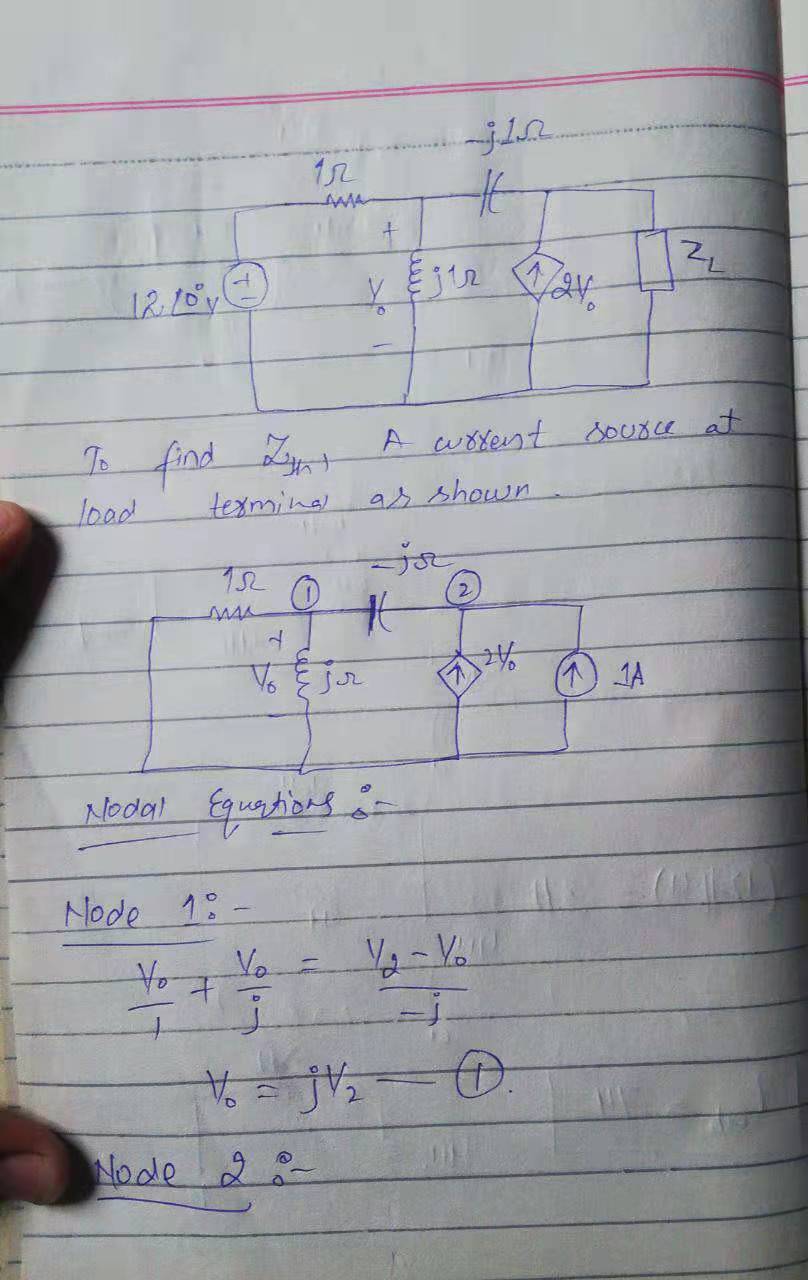 -j1Ω
1Ω
+
12∠0°V
+
-
V₀
j1Ω
2V₀
Z_L
-
To find Z_Th, A current source at
load terminal as shown.
1Ω
①
-jΩ
②
+
V₀
jΩ
2V₀
1A
Nodal Equations :-
Node 1 :-
V₀/1 + V₀/j = (V₂ - V₀)/-j
V₀ = jV₂ — ①.
Node 2 :-